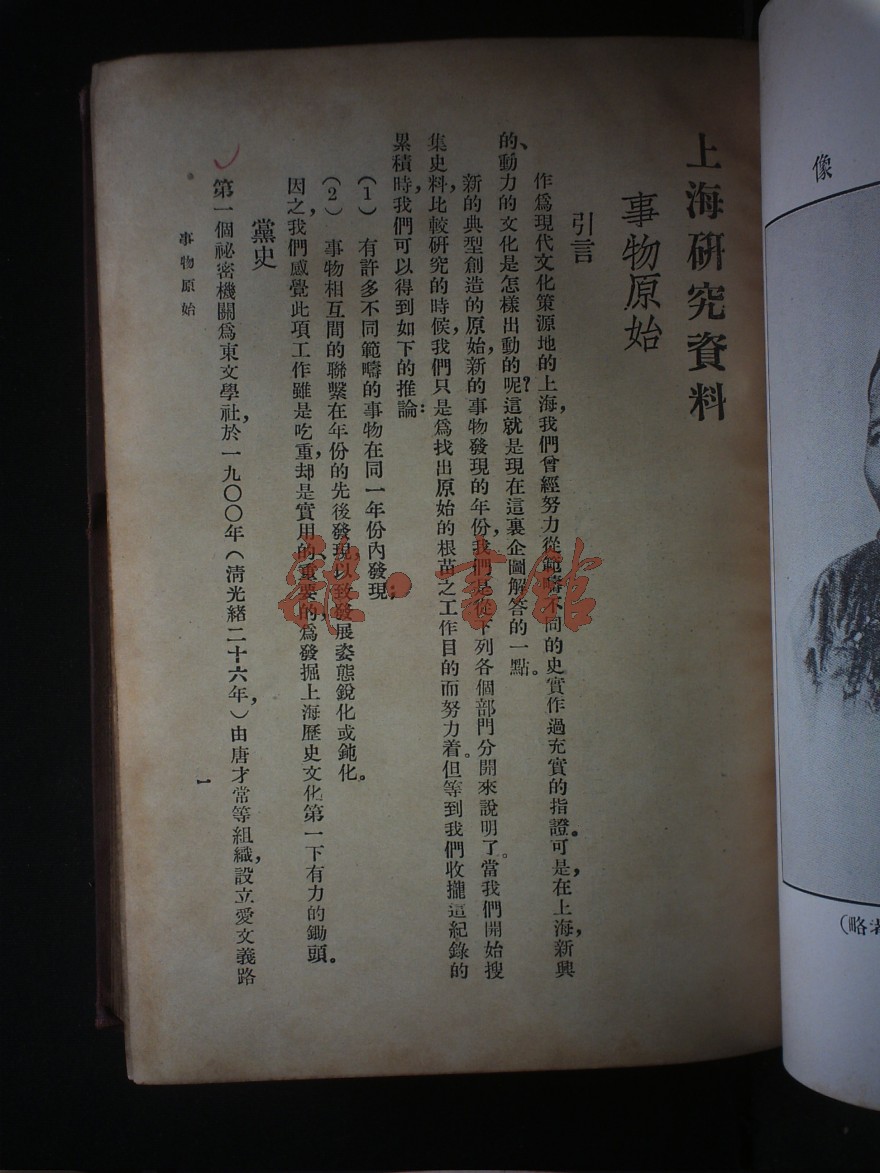 上海研究資料
事物原始
引言
作爲現代文化策源地的上海，我們曾經努力從範疇不同的史實作過充實的指證。可是，在上海，新興
的、動力的文化是怎樣出動的呢？這就是現在這裏企圖解答的一點。
新的典型創造的原始，新的事物發現的年份，我們是從下列各個部門分開來說明了。當我們開始搜
集史料，比較研究的時候，我們只是爲找出原始的根苗之工作目的而努力着。但等到我們收攏這紀錄的
累積時，我們可以得到如下的推論：
（1）　有許多不同範疇的事物在同一年份內發現；
（2）　事物相互間的聯繫在年份的先後發現，以致發展姿態銳化或鈍化。
因之，我們感覺此項工作雖是吃重，却是實用的、重要的，爲發掘上海歷史文化第一下有力的鋤頭。
黨史
第一個祕密機關爲東文學社，於一九〇〇年（清光緒二十六年，）由唐才常等組織，設立愛文義路
事物原始
一
像
（略
雜·書館